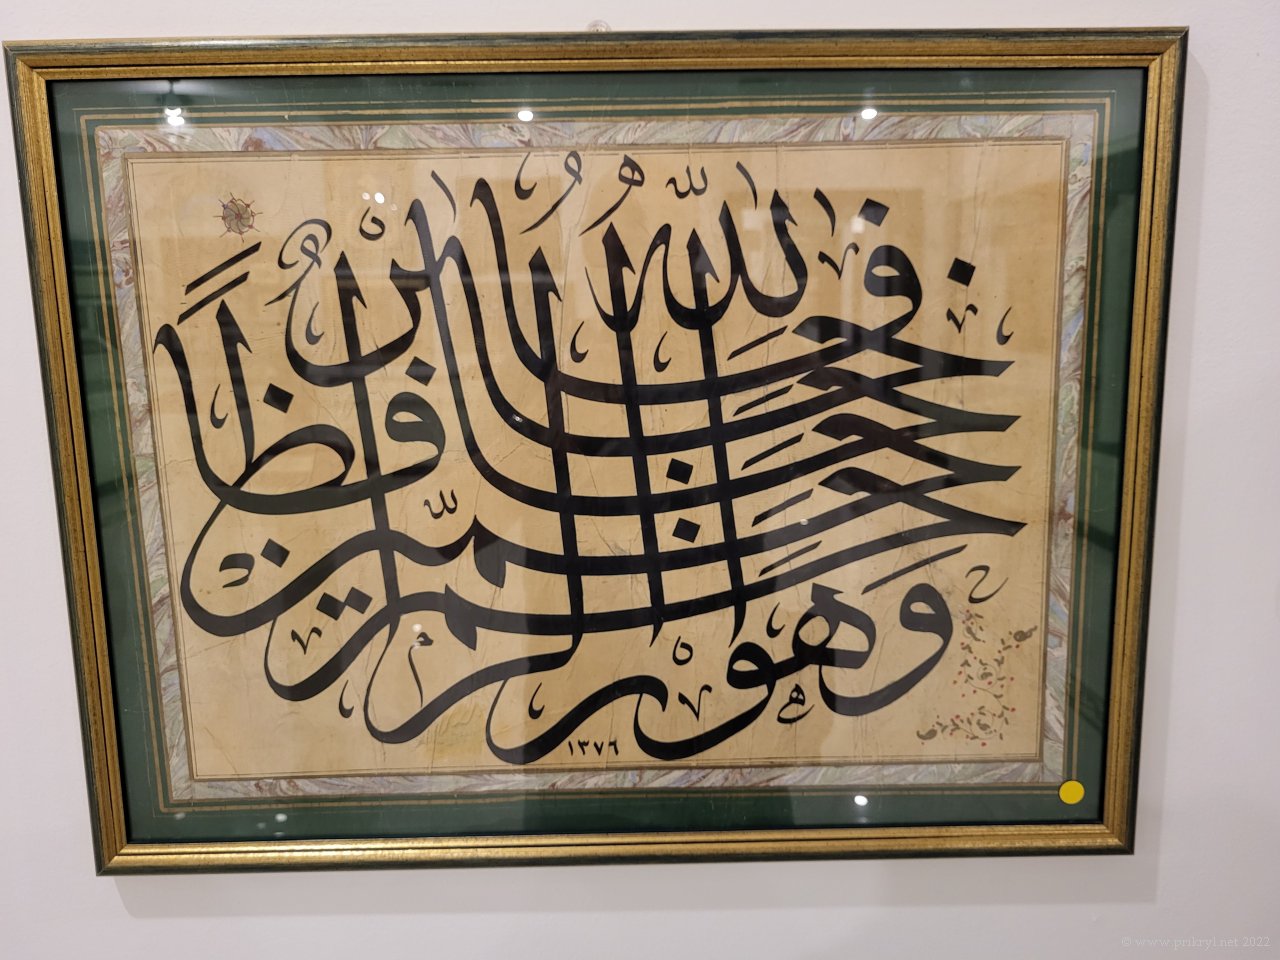 فَاللّٰهُ خَيْرٌ حَافِظًا وَهُوَ اَرْحَمُ الرَّاحِمِينَ
١٣٧٦
© www.prikryl.net 2022